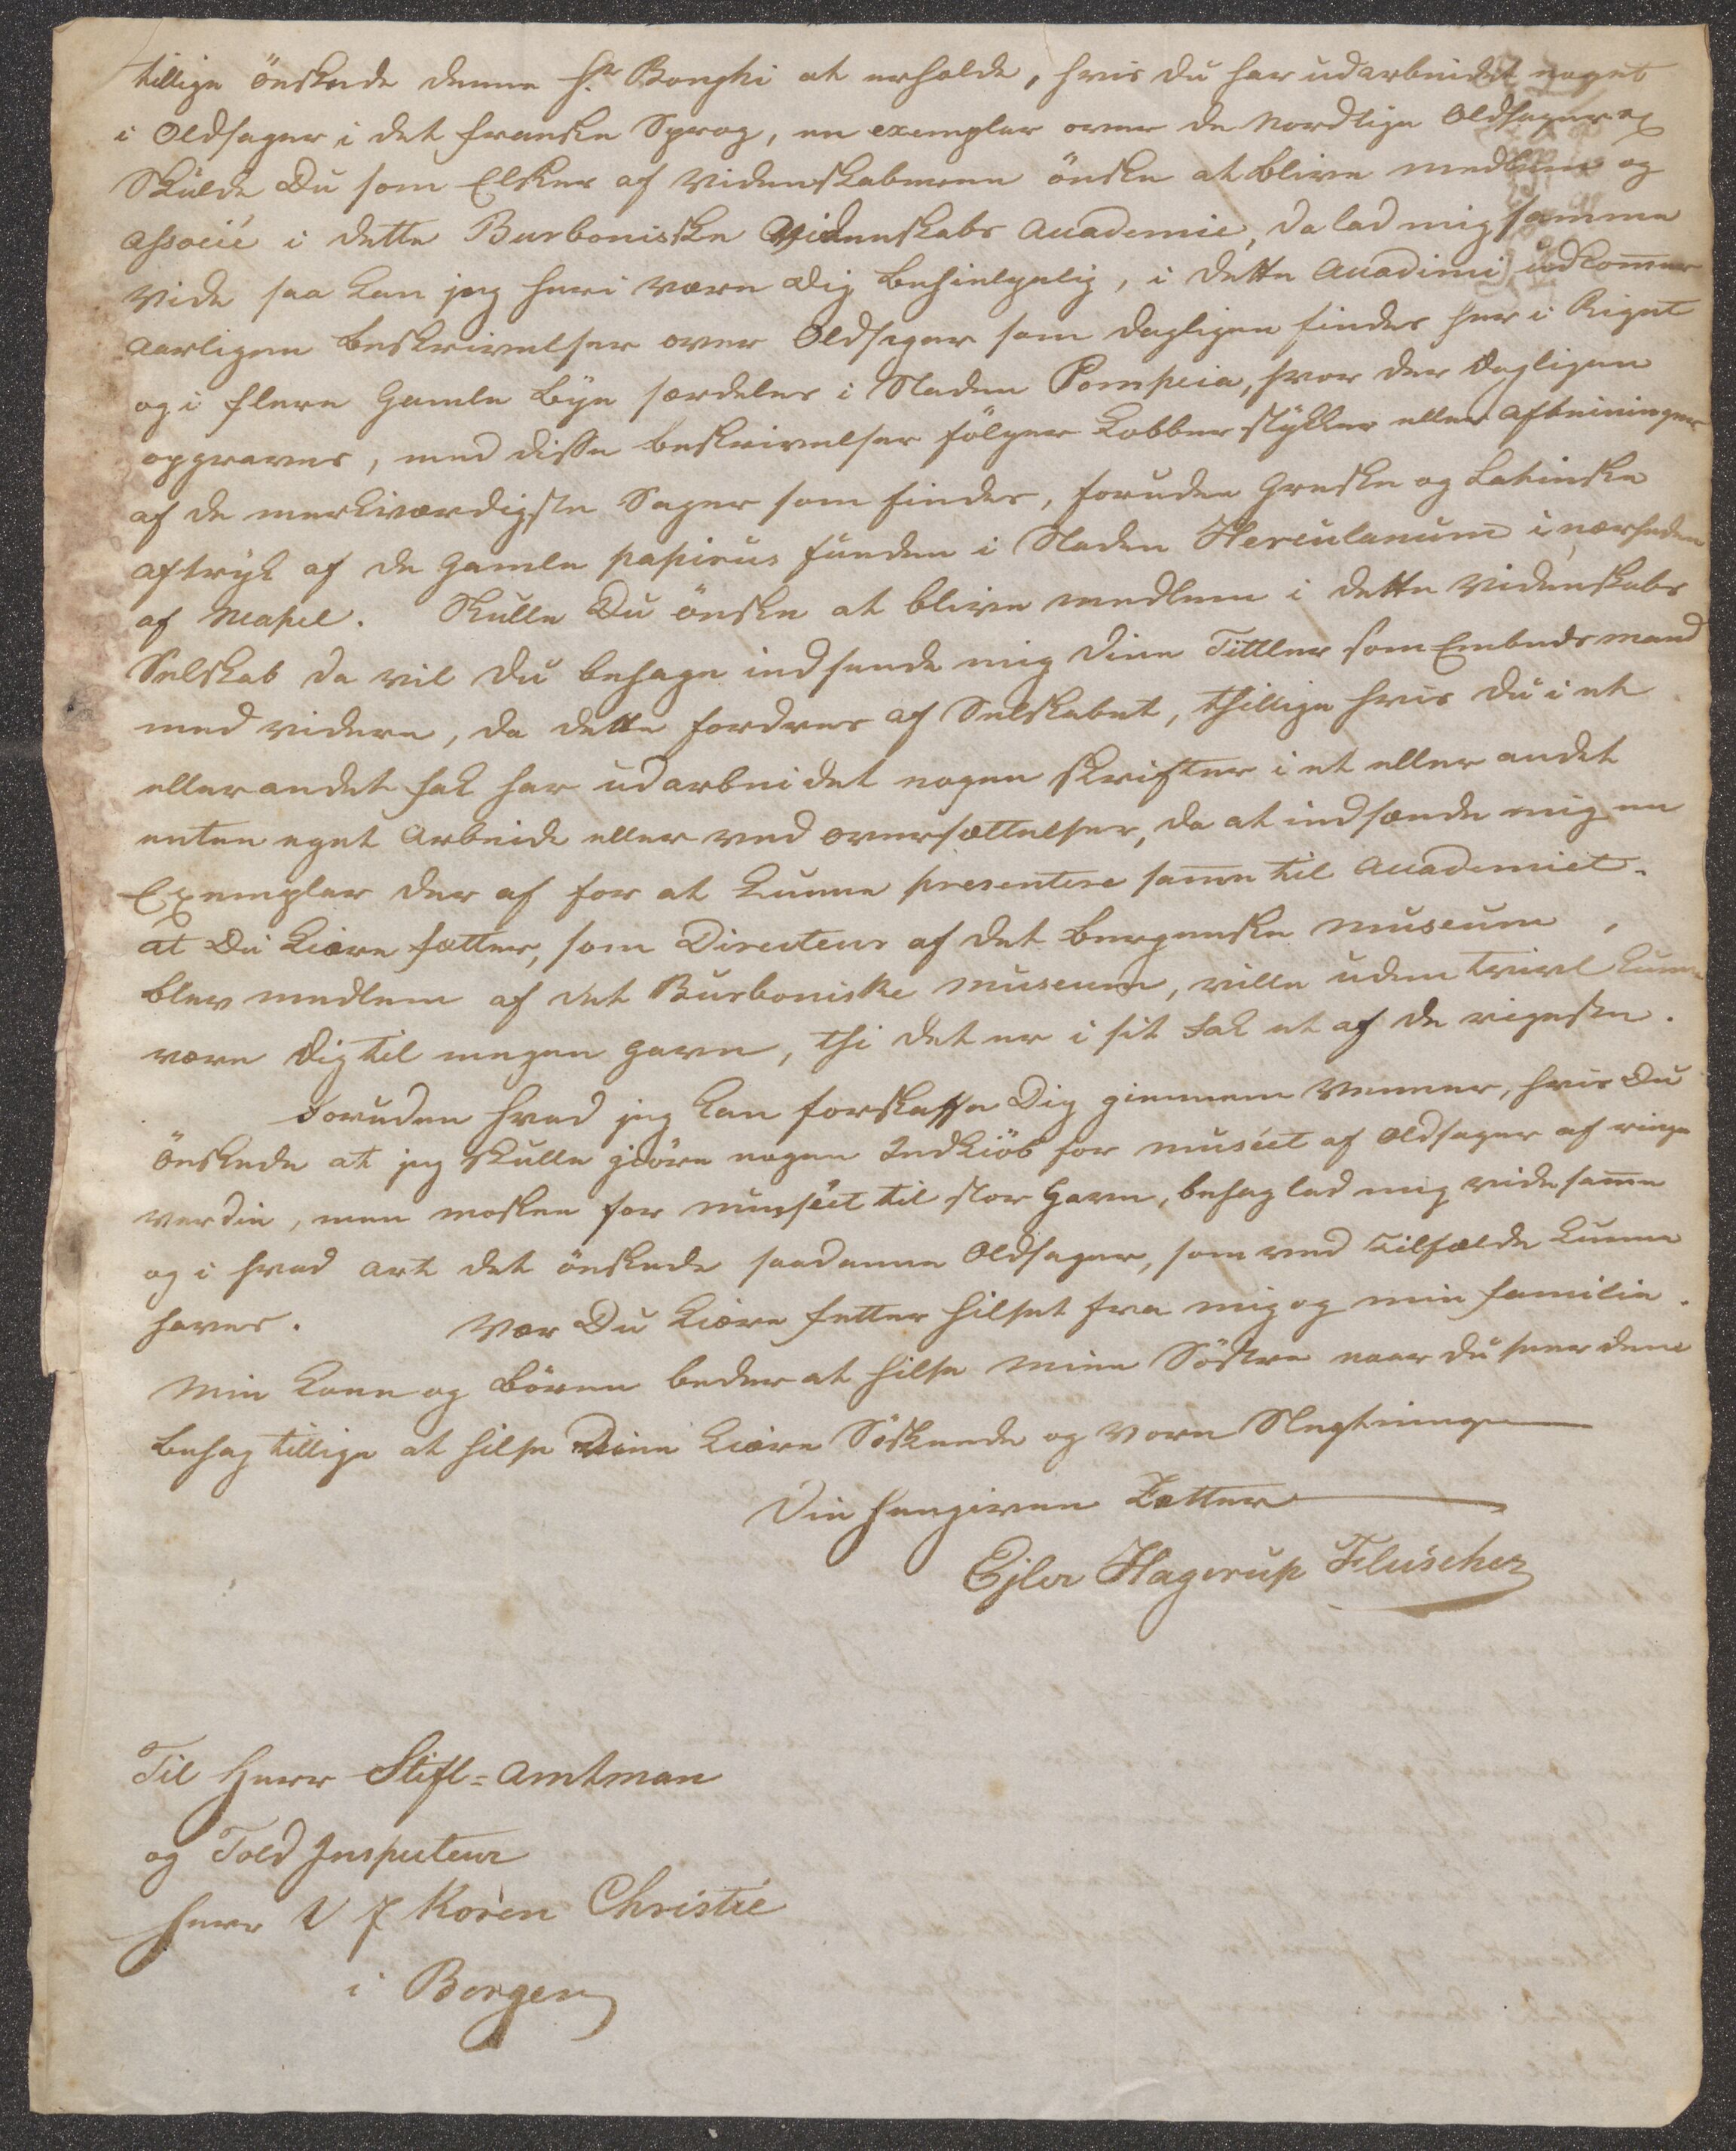 tillige önskede denne Hr. Bonghi at erholde, hvis du har udarbeidet noget
i Oldsager i det franske Sprog, en exemplar over de Nordlige Oldsager
Skulde Du som Elsker af Videnskaberne önske at blive medlem og
associé i dette Burboniske Videnskabs Accademie, da lad mig samme
vide saa kan jeg heri være Dig behielpelig, i dette Accadimi udkom̅er
aarligen beskrivelser over Oldsager som dagligen findes her i Riget
og i flere Gamle Bye særdeles i Staden Pompeia, hvor der Dagligen
opgraves, med disse beskrivelser fölger Kobberstykker eller afteininger
af de merkværdigste Sager som findes, foruden Greske og Latinske
aftryk af de Gamle papirus funden i Staden Herculanum i nærheden
af Neapel. Skulle Du önske at blive medlem i dette Videnskabs
Selskab da vil Du behage indsende mig Dine Tittler som Embedsmand
med videre, da dette fordres af Selskabet, thillige hvis Du i et
eller andet fak har udarbeidet nogen skrifter i et eller andet
enten eget Arbeide eller ved oversættelser, da at indsænde mig en
Exemplar der af for at kunne presentere sam̅e til Accademiet.
at Du Kiære fætter, som Directeur af det bergenske museum,
blev medlem af det Burboniske museum, ville uden tvivl kunne
være Dig til megen gavn, thi det er i sit fak et af de rigeste.
Foruden hvad jeg kan forskaffe Dig giennem Venner, hvis Du
önskede at jeg skulle giöre nogen Indkiöb for muséet af Oldsager af ringe
verdie, men maskee for muséet til stor Gavn, behag lad mig vide sam̅e
og i hvad art det önskede saadanne Oldsager, som ved Tilfælde kunne
haves. Vær Du Kiære fetter hilset fra mig og min familie.
Min Kone og Börn beder at hilse mine Söstre naar du seer dem
behag tillige at hilse Dine Kiære Söskende og vore Slegtninge
Din hengivne Fætter
Ejler Hagerup Flüscher
Til Herr Stift-amtman
og Told Inspecteur
Herr W F Koren Christie
i Bergen